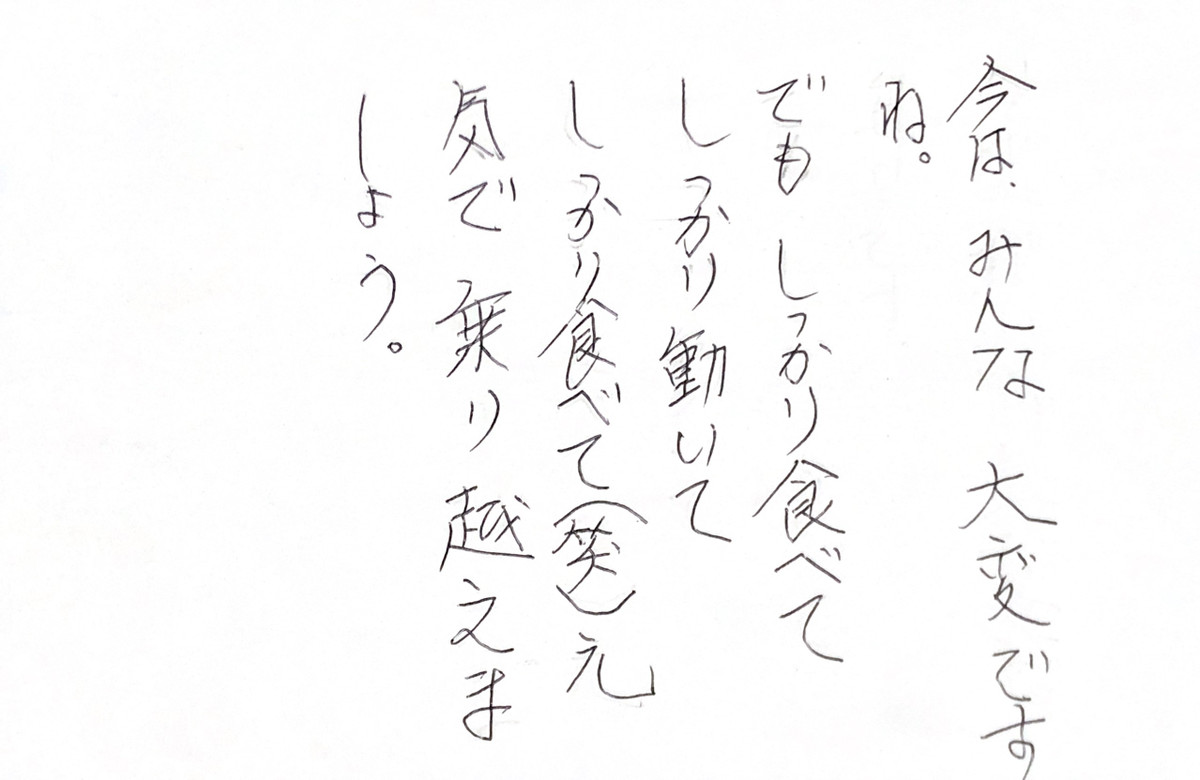 今は、みんな 大変です
ね。
でも しっかり食べて
しっかり動いて
しっかり食べて(笑)元
気で 乗り越えま
しょう。